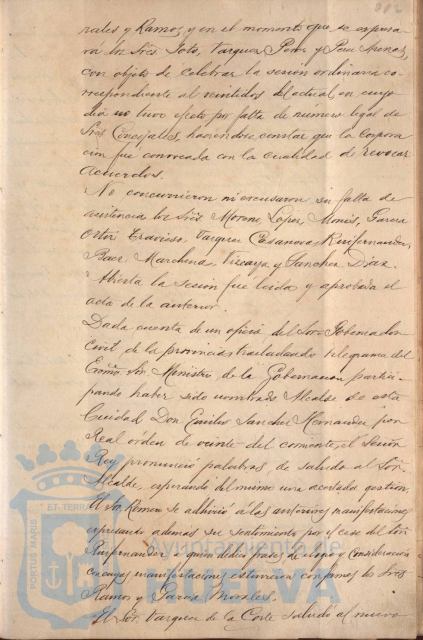 rales y Ramos, y en el momento que se expresa
rá los Sres. Soto, Vazquez Perez y Perez Arenas,
con objeto de celebrar la sesión ordinaria co-
rrespondiente al veintidos del actual, en cuyo
dia no tuvo efecto por falta de número legal de
Sres Concejales, haciéndose constar que la Corpora
cion fué convocada con la cualidad de revocar
acuerdos.
No concurrieron ni excusaron su falta de
asistencia los Sres Moreno, Lopez, Garcia
Ortiz, Travieso, Vazquez Casanova, Ruifernandez,
Baez, Marchena, Vizcaya y Sanchez Diaz.
Abierta la sesión fué leida y aprobada el
acta de la anterior.
Dada cuenta de un oficio del Sor. Gobernador
Civil de la provincia, trasladando telegrama del
Excmo. Sor. Ministro de la Gobernacion partici-
pando haber sido nombrado Alcalde de esta
Ciudad Don Emilio Sanchez Hernandez por
Real órden de veinte del corriente, el Señor
Rey pronunció palabras de saludo al Sor.
Alcalde, esperando del mismo una acertada gestion.
El Sor. Ramos se adhirió á las anteriores manifestaciones
expresando ademas su sentimiento por el cese del Sor
Ruifernandez con frases de y consideración
cuyas manifestaciones estuvieron conformes los Sres
Ramos y Garcia Morales.
El Sor. Vazquez de la Corte saludó al nuevo
PORTUS MARIS ET TERRAE
Ayuntamiento de
HUELVA